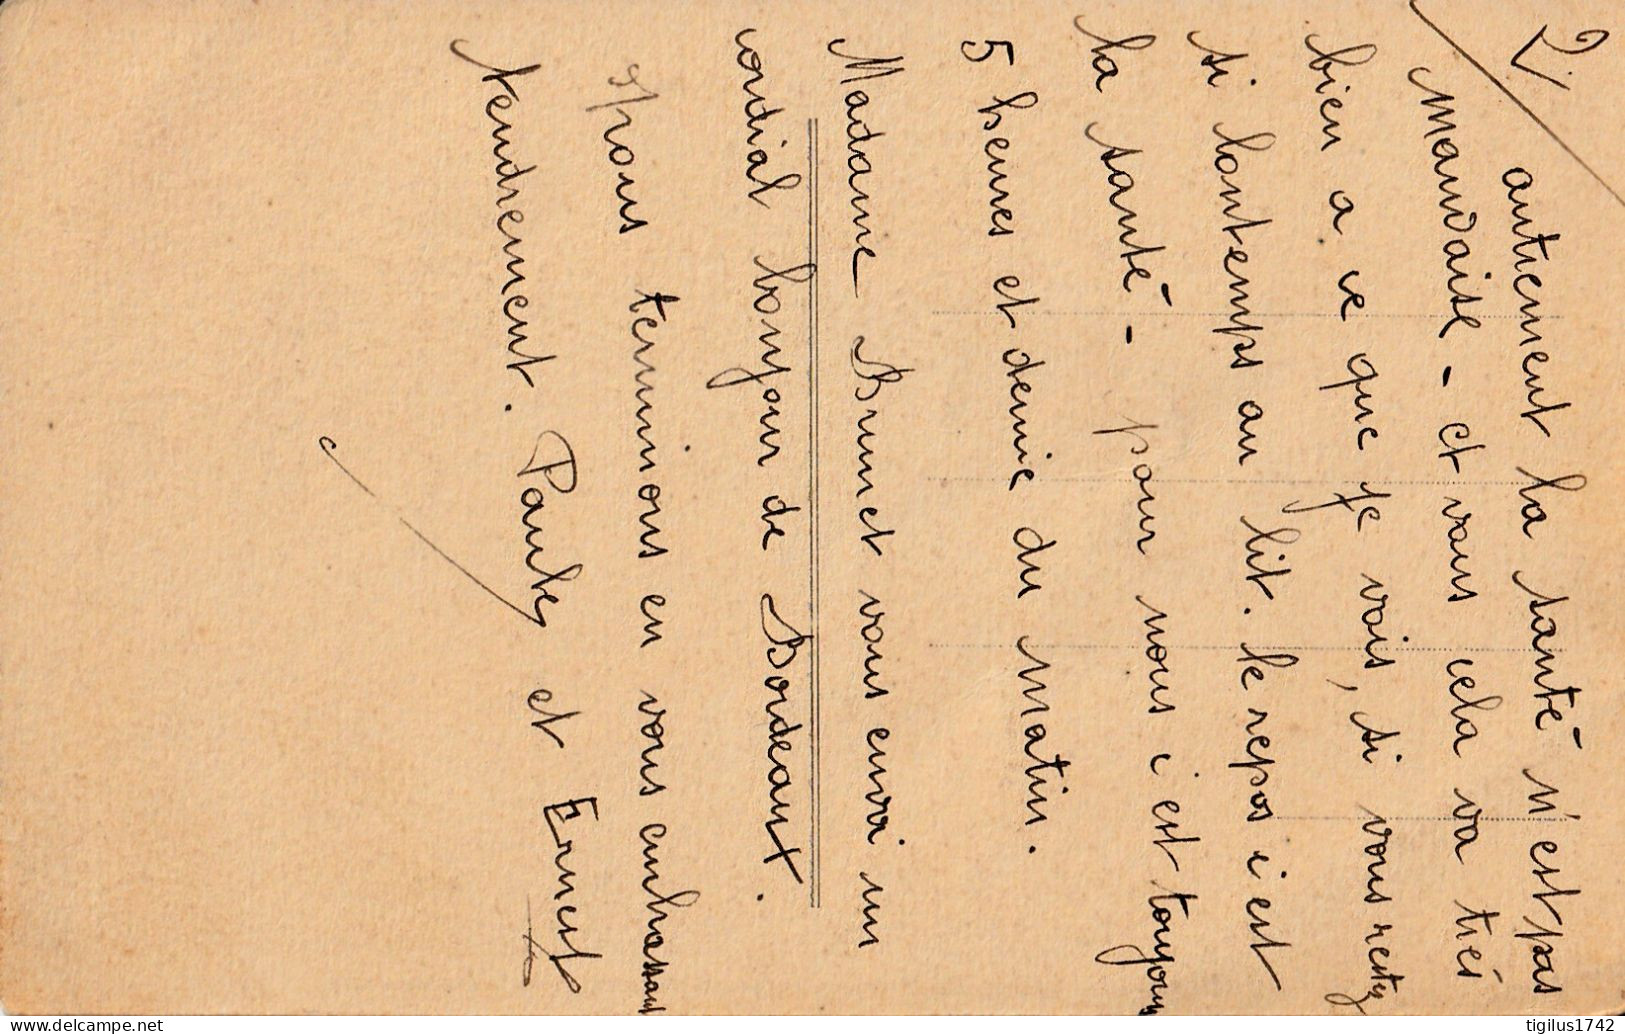 2/
autrement la santé n'est pas
mauvaise - et vous cela va très
bien a ce que je vois, si vous restez
si lontemps au lit. le repos c'est
la santé - pour nous c'est toujours
5 heures et demie du matin.
Madame Brunet vous envoi un
cordial bonjour de Bordeaux.
Nous terminons en vous embrassant
tendrement. Pauley et Ernest
tigilus1742